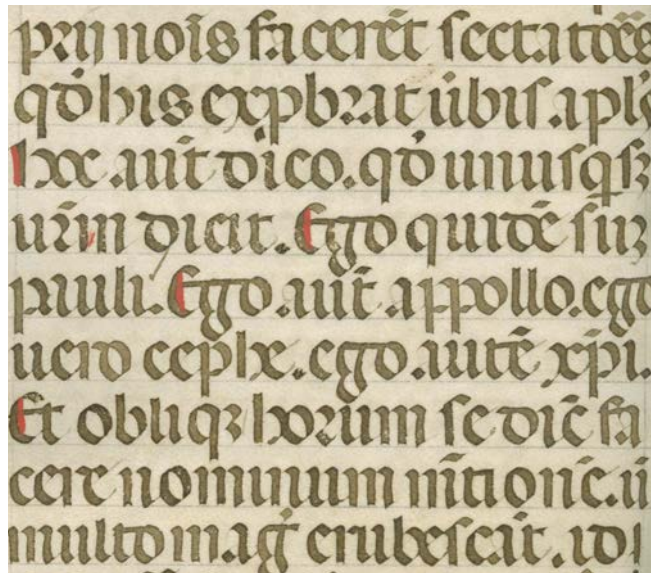 prij nōis facerēt sectatoēs
qđ his exprbrat ūbis. apl̄s
hoc aūt dico. qđ unusqsꝫ
ur̄m dicit. Ego quidē suꝫ
pauli. Ego. aūt. appollo. ego
uero cephe. ego. autē xp̄i.
Et obliqꝫ horum se dic̄ fa
cere nominum m̄tionē.
multo maḡ erubescāt.